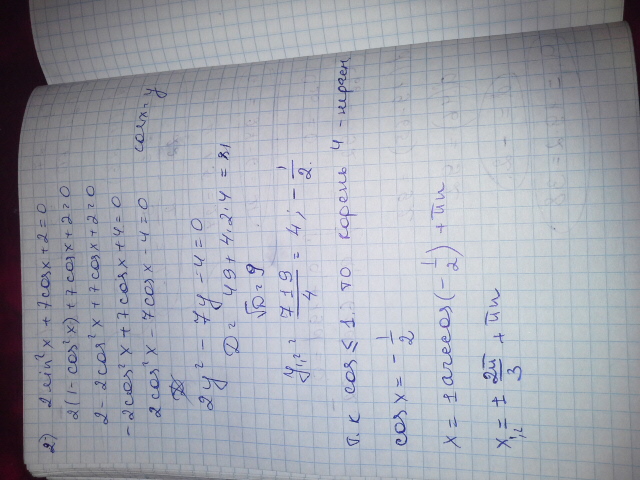 2) 2sin²x + 7cosx + 2 = 0
2(1-cos²x) + 7cosx + 2 = 0
2 - 2cos²x + 7cosx + 2 = 0
-2cos²x + 7cosx + 4 = 0
2cos²x - 7cosx - 4 = 0 cosx = y
2y² - 7y - 4 = 0
D = 49 + 4·2·4 = 81
√D = 9
y₁,₂ = (7±9)/4 = 4; -1/2.
т.к cos ≤ 1. то корень 4
cos x = -1/2
x = ± arccos(-1/2) + πn
x₁,₂ = ± 2π/3 + πn